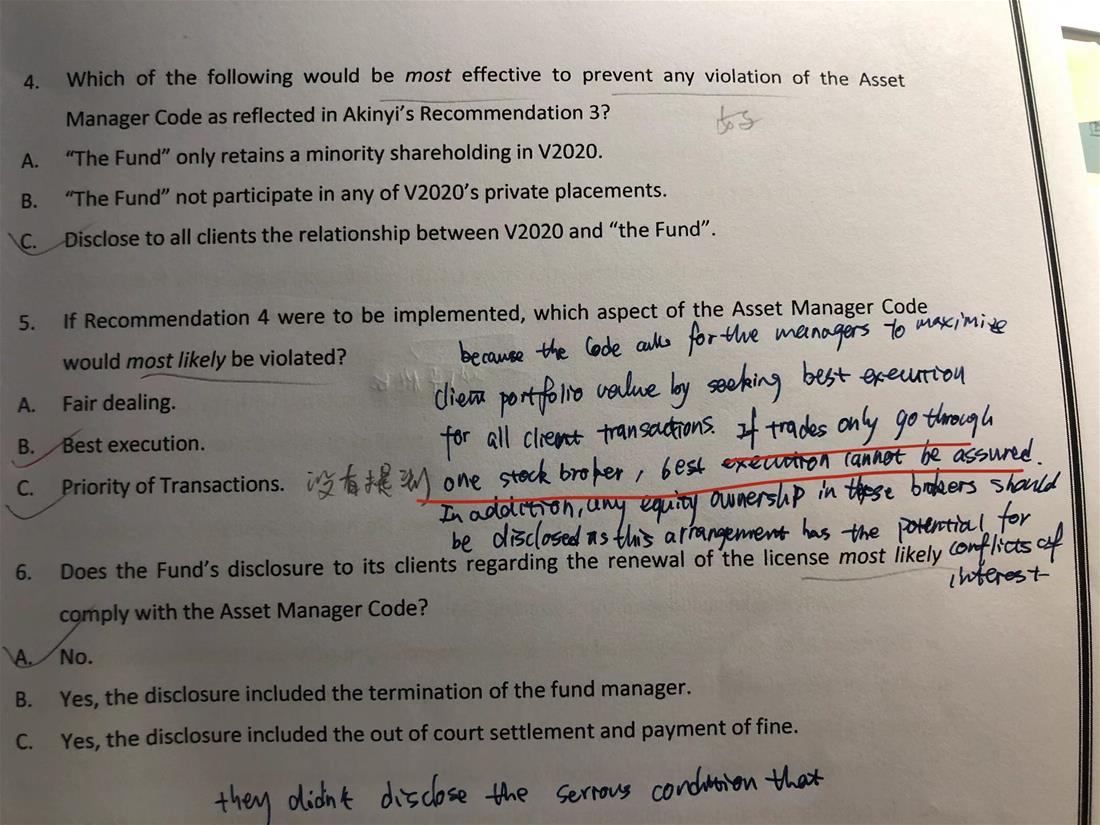 4. Which of the following would be most effective to prevent any violation of the Asset
Manager Code as reflected in Akinyi's Recommendation 3?
A. "The Fund" only retains a minority shareholding in V2020.
B. "The Fund" not participate in any of V2020's private placements.
C. Disclose to all clients the relationship between V2020 and "the Fund".
5. If Recommendation 4 were to be implemented, which aspect of the Asset Manager Code
would most likely be violated?
because the Code calls for the managers to maximize
client portfolio value by seeking best execution
A. Fair dealing.
for all client transactions. If trades only go through
B. Best execution.
one stock broker, best execution cannot be assured.
C. Priority of Transactions. 没有提到
In addition, any equity ownership in these brokers should
be disclosed as this arrangement has the potential for
conflicts of
interest
6. Does the Fund's disclosure to its clients regarding the renewal of the license most likely
comply with the Asset Manager Code?
A. No.
B. Yes, the disclosure included the termination of the fund manager.
C. Yes, the disclosure included the out of court settlement and payment of fine.
they didn't disclose the serious condition that